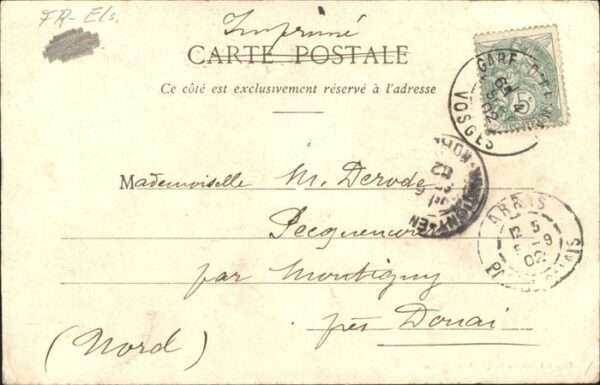 FR-Els.
Imprimé
CARTE POSTALE
Ce côté est exclusivement réservé à l'adresse
GARE
VOSGES
5
Mademoiselle M. Derode
Pecquencourt
par Montigny
près Douai
(Nord)
ARRAS
5
12 9
02